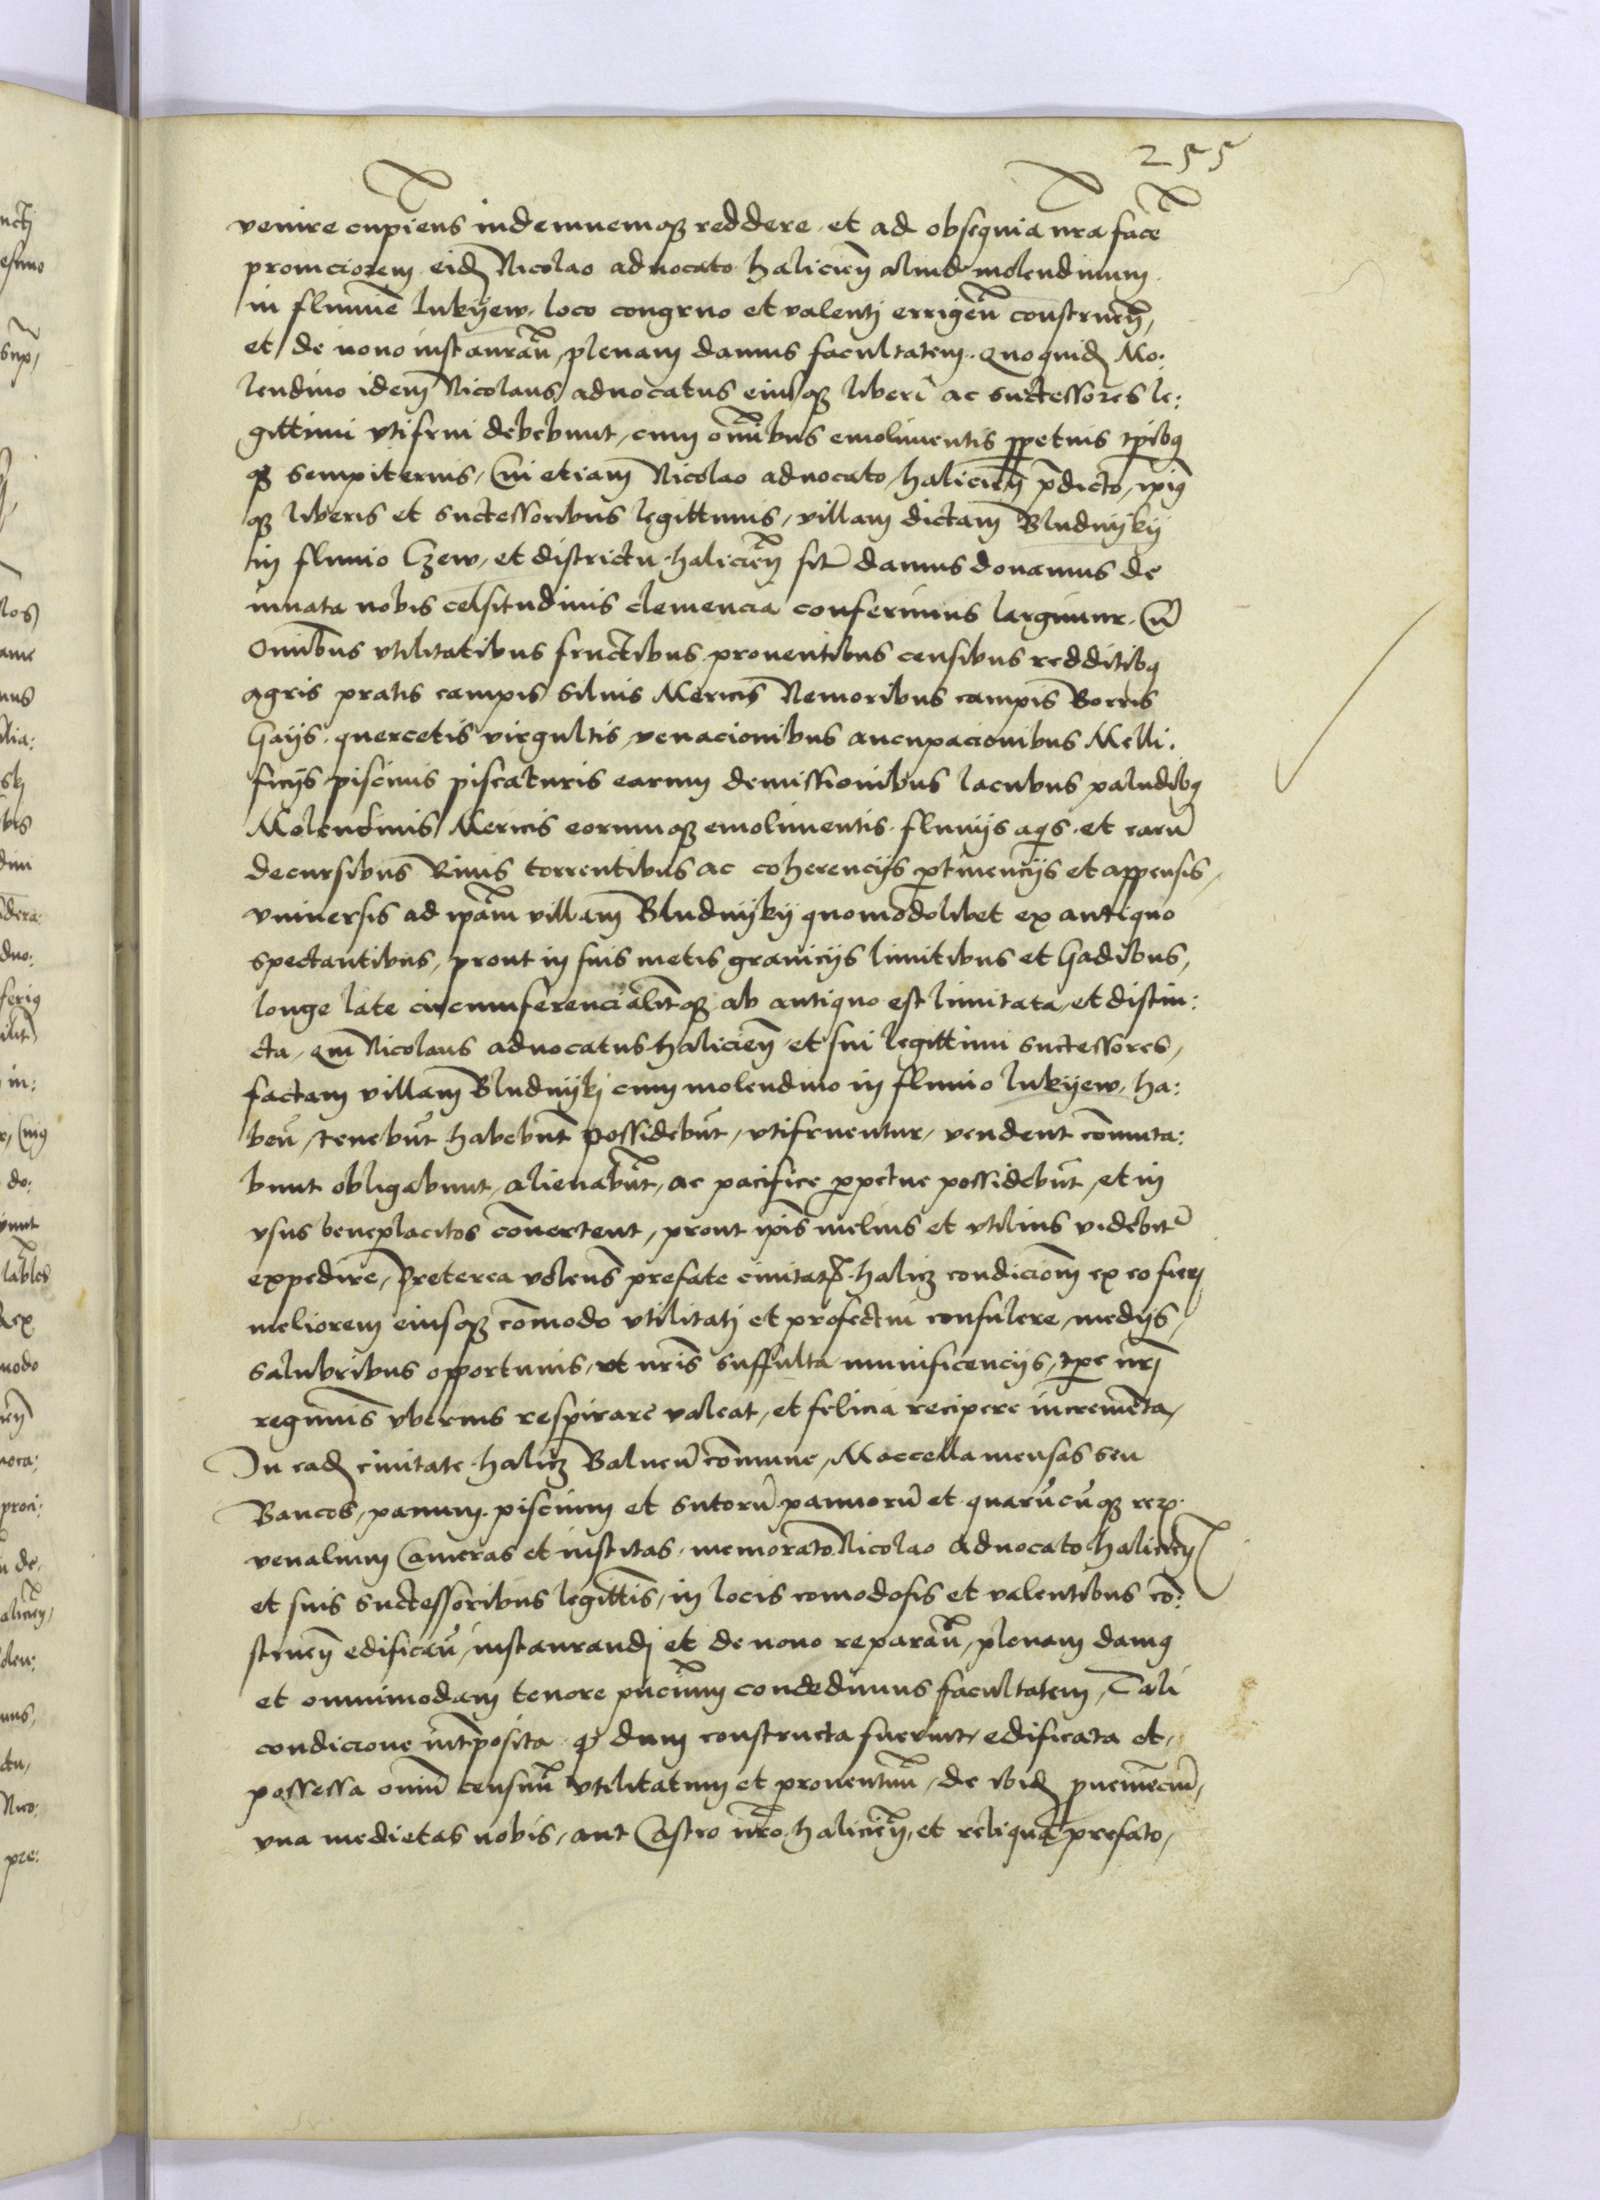 255
venire cupiens indemnemque reddere et ad obsequia nra facē
promciorem eid Nicolao advocato halicien aliud molendinum
in flumie lukyew loco congruo et valenti errigen construen,
et de novo instauran, plenam damus facultatem. quoquid Mo:
lendino idem Nicolaus advocatus eiusque liberi ac successores le:
gittimi utifrui debebunt, cum omibus emolimentis ppetuis tpibq
q sempiternis, Cui etiam Nicolao advocato halicien pdicto, ipiq
que liberis et successoribus legittimis, villam dictam Bludnyky
in fluvio Czew, et districtu halicien sit damus donamus de
innata nobis celsitudinis clemencia conferimus largimur. Cū
omibus utilitatibus fructibus proventibus censibus redditibq
agris pratis campis silvis Mericis Nemoribus campis Borris
Gayis quercetis virgultis venacionibus aucupacionibus Melli:
ficiis piscinis piscaturis earum demissionibus lacubus paludibq
Molendinis Mericis eorumque emolimentis fluviis aqis et earū
decursibus Rivis torrentibus ac coherenciis ptinenciis et appensis,
universis ad ipam villam Bludnyky quomodolibet ex antiquo
spectantibus, prout in suis metis graniciis limitibus et Gadibus,
longe late circumferencialitque ab antiquo est limitata, et distin:
cta, qm Nicolaus advocatus halicien et sui legittimi successores,
factam villam Bludnyki cum molendino in fluvio lukyew, ha:
beū, tenebūt habebunt possidebūt, utifruentur, vendent comuta:
bunt obligabunt, alienabūt, ac pacifice ppetue possidebūt, et in
usus beneplacitos convertent, prout ipis melius et utilius videbitr
expedire, Preterea volens prefate civitatis halicz condiciom ex eo fieri
meliorem eiusque comodo utilitati et profectui consulere, mediis,
salubribus opportunis, ut nris suffulta munificenciis, tpe nri
regiminis uberius respirare valeat, et felicia recipere incremēta,
In ead civitate halicz Balneū comune, Maccella mensas seu
Bancos, panum piscium et sutorū pannorū et quarūcūque rerum
venalium Cameras et institas memorato Nicolao advocato halicien
et suis successoribus legittis, in locis comodosis et valentibus cō:
struen edificaū, instaurandi et de novo reparan, plenam damq
et omnimodam tenore pncium concedimus facultatem, Tali
condicione intposita q dum constructa fuerint, edificata et,
possessa omiū censuū utilitatum et proventuū, de ibid pvenienciū,
una medietas nobis, aut Castro nro halicien, et reliqua prefato,